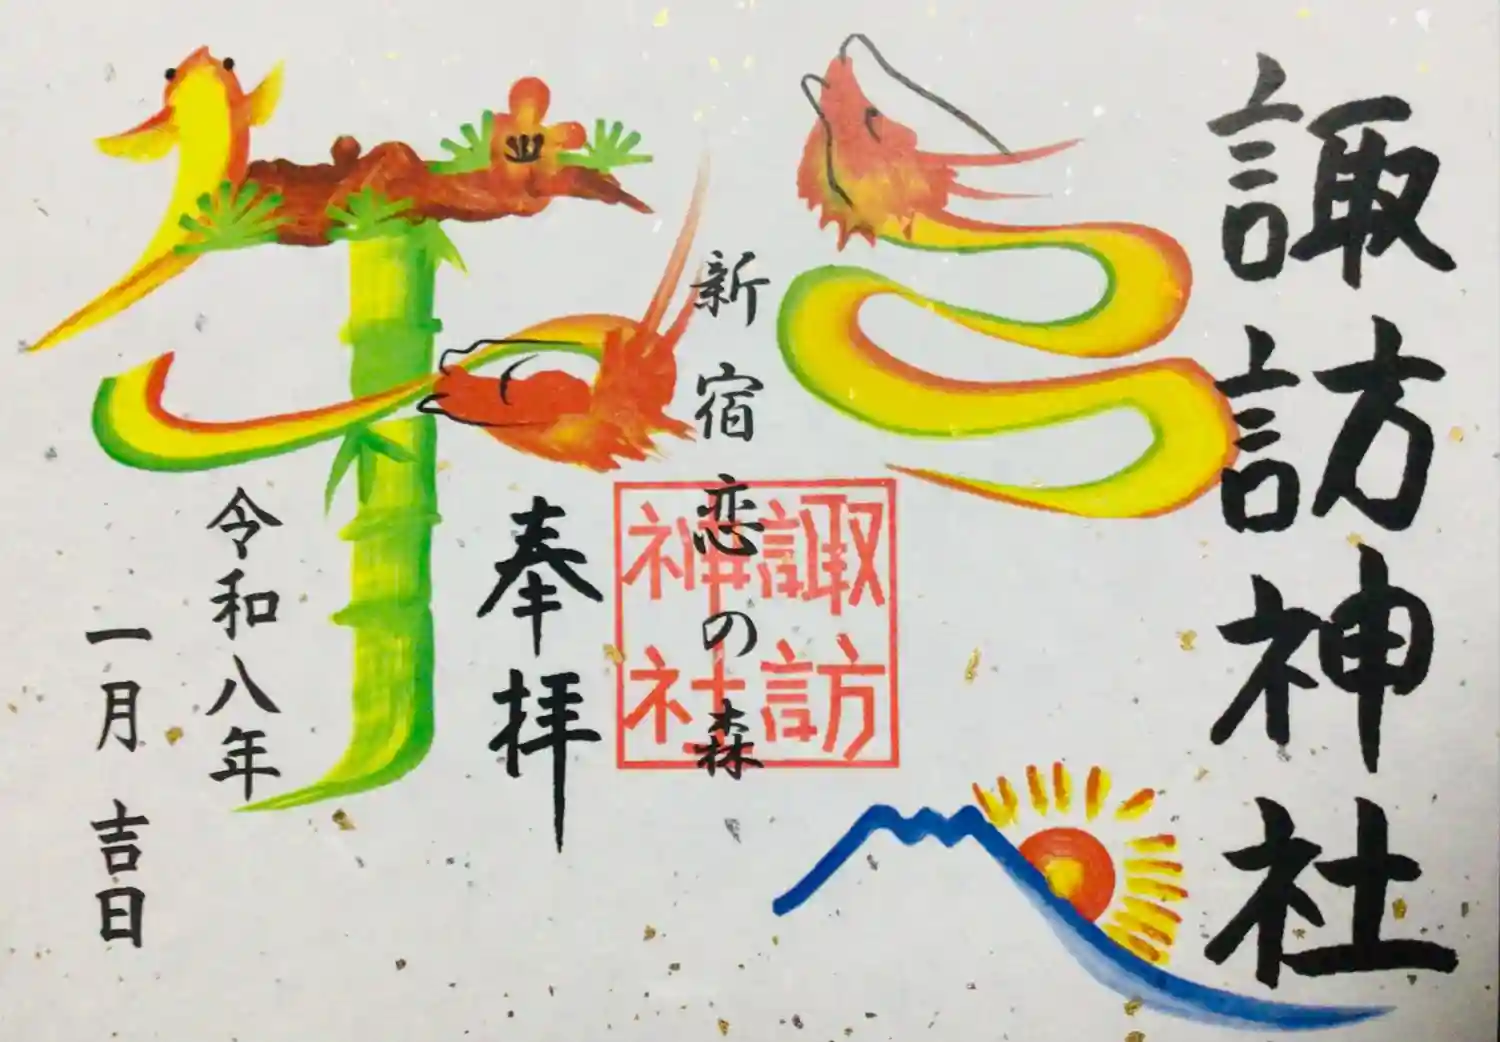 諏訪神社
新宿恋の森
諏訪
神社
奉拝
午
令和八年
一月 吉日